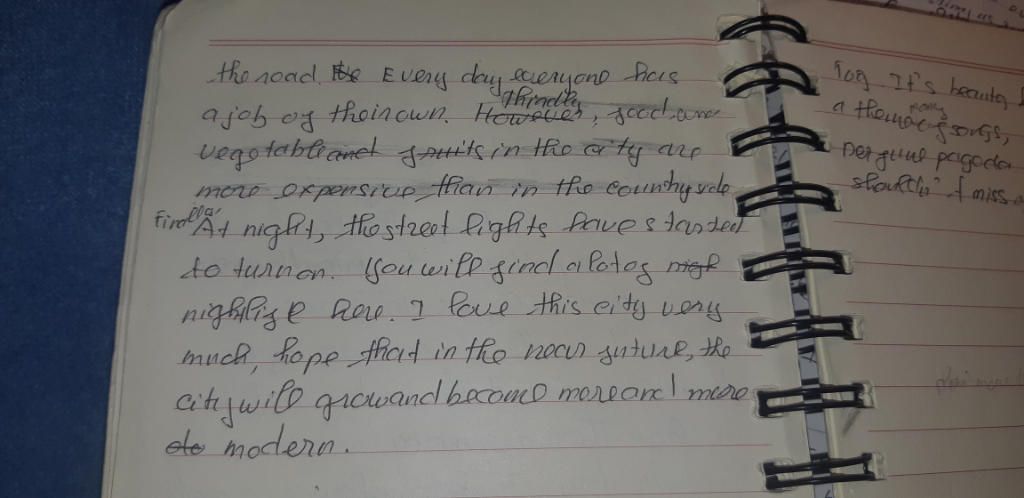 the road. Every day everyone has
a job of their own. However, food and
Thirdly
vegetable and fruits in the city are
more expensive than in the countryside
Finally At night, the street lights have started
to turn on. You will find a lot of nigh
nightlife here. I love this city very
much, hope that in the near future, the
city will grow and become more and more
modern.
Tog. It's beauty
a theme of songs,
many
pagoda
I miss